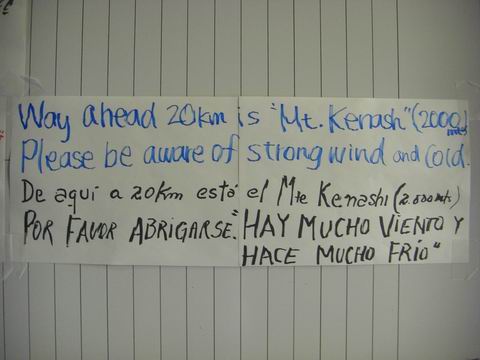 Way ahead 20km is "Mt. Kenash" (2000
Please be aware of strong wind and cold.
De aquí a 20km está el Mte Kenashi (2.000 mts.)
POR FAVOR ABRIGARSE. "HAY MUCHO VIENTO Y
HACE MUCHO FRIO"